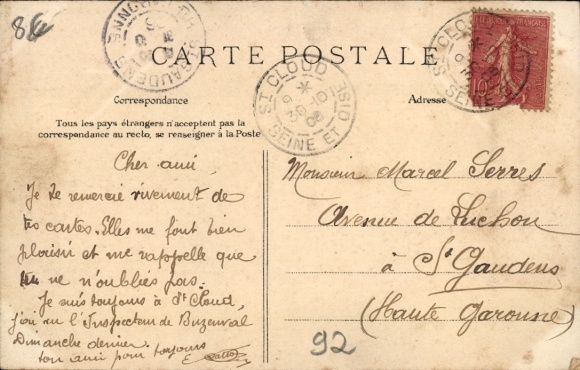 86
CARTE POSTALE
Correspondance
Adresse
Tous les pays étrangers n'acceptent pas la
correspondance au recto, se renseigner à la Poste
ST CLOUD
SEINE ET OISE
Cher ami,
Je te remercie vivement de
tes cartes. Elles me font bien
plaisir et me rappelle que
tu ne n'oublies pas.
Je suis toujours à St Cloud,
j'ai vu l'Inspecteur de Buzenval
Dimanche dernier.
ton ami pour toujours
Monsieur Marcel Serres
Avenue de Luchon
à St Gaudens
(Haute Garonne)
92